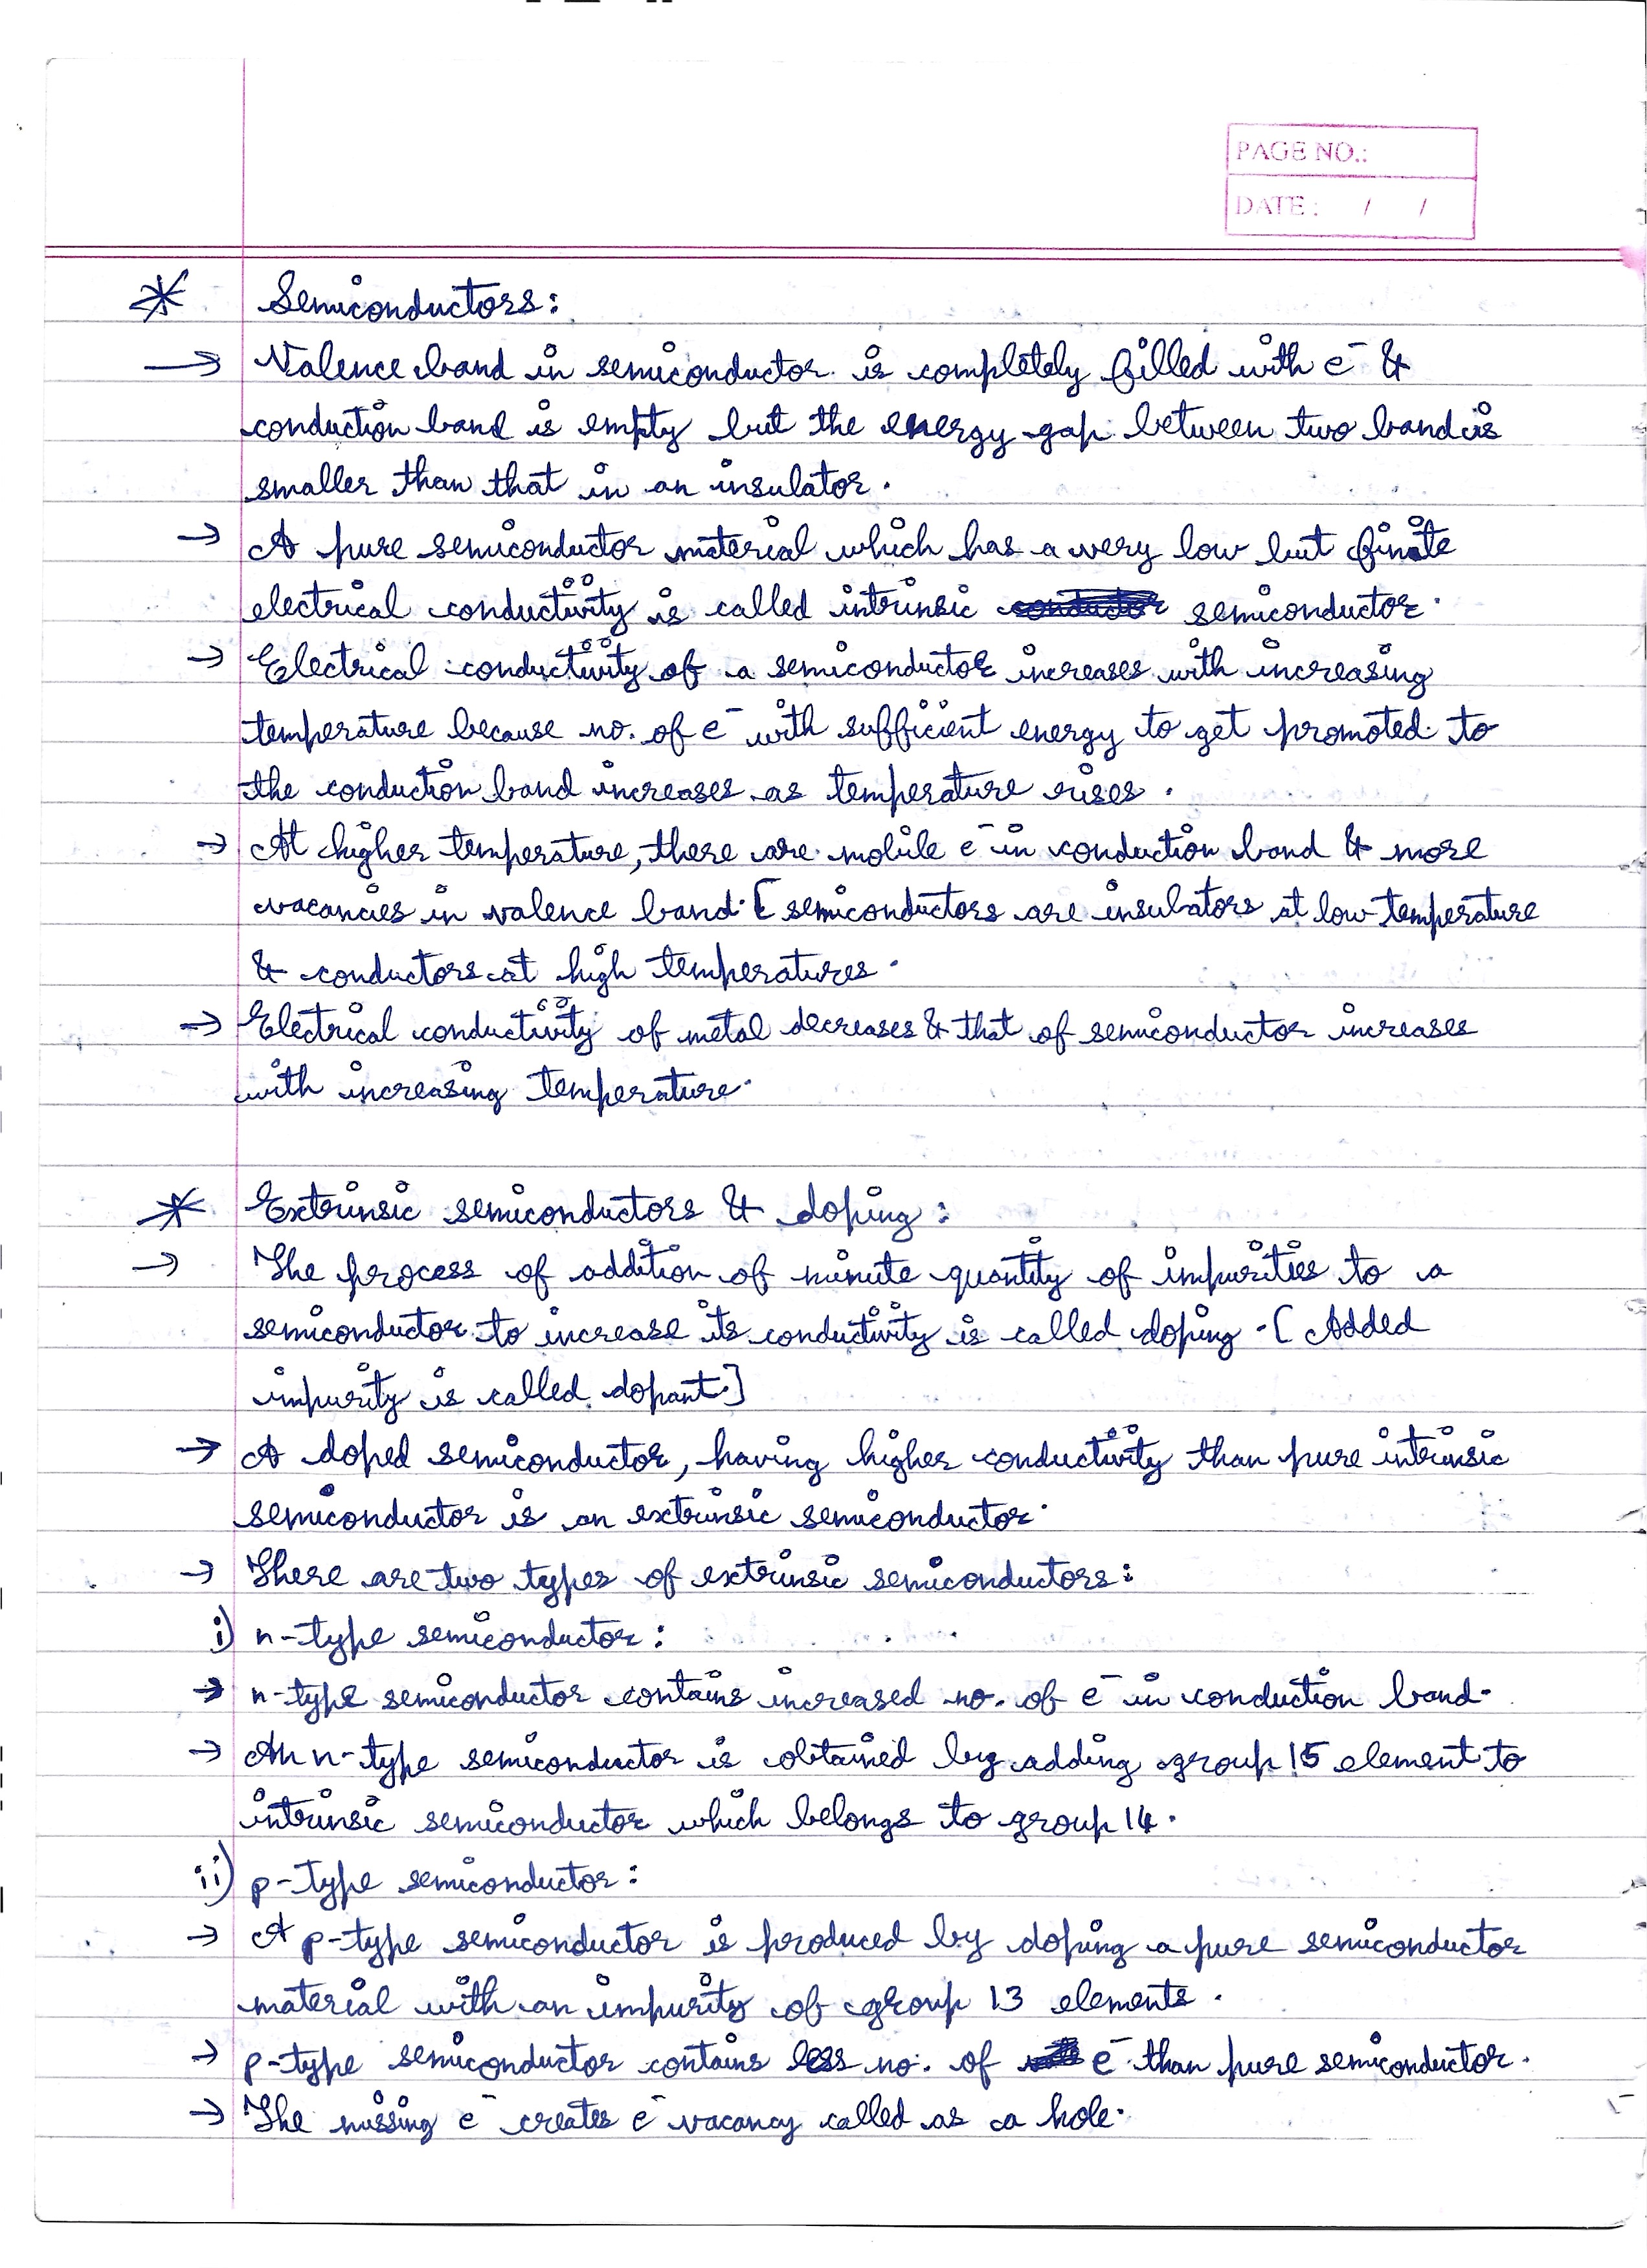 PAGE NO.:
DATE : / /
* Semiconductors:
→ Valence band in semiconductor is completely filled with e⁻ &
conduction band is empty but the energy gap between two band is
smaller than that in an insulator.
→ A pure semiconductor material which has a very low but finite
electrical conductivity is called intrinsic semiconductor.
→ Electrical conductivity of a semiconductor increases with increasing
temperature because no. of e⁻ with sufficient energy to get promoted to
the conduction band increases as temperature rises.
→ At higher temperature, there are mobile e⁻ in conduction band & more
vacancies in valence band. [semiconductors are insulators at low temperature
& conductors at high temperatures.
→ Electrical conductivity of metal decreases & that of semiconductor increases
with increasing temperature.
* Extrinsic semiconductors & doping:
→ The process of addition of minute quantity of impurities to a
semiconductor to increase its conductivity is called doping. [Added
impurity is called dopant.]
→ A doped semiconductor, having higher conductivity than pure intrinsic
semiconductor is an extrinsic semiconductor.
→ There are two types of extrinsic semiconductors:
i) n-type semiconductor:
→ n-type semiconductor contains increased no. of e⁻ in conduction band.
→ An n-type semiconductor is obtained by adding group 15 element to
intrinsic semiconductor which belongs to group 14.
ii) p-type semiconductor:
→ A p-type semiconductor is produced by doping a pure semiconductor
material with an impurity of group 13 elements.
→ p-type semiconductor contains less no. of e⁻ than pure semiconductor.
→ The missing e⁻ creates e⁻ vacancy called as a hole.